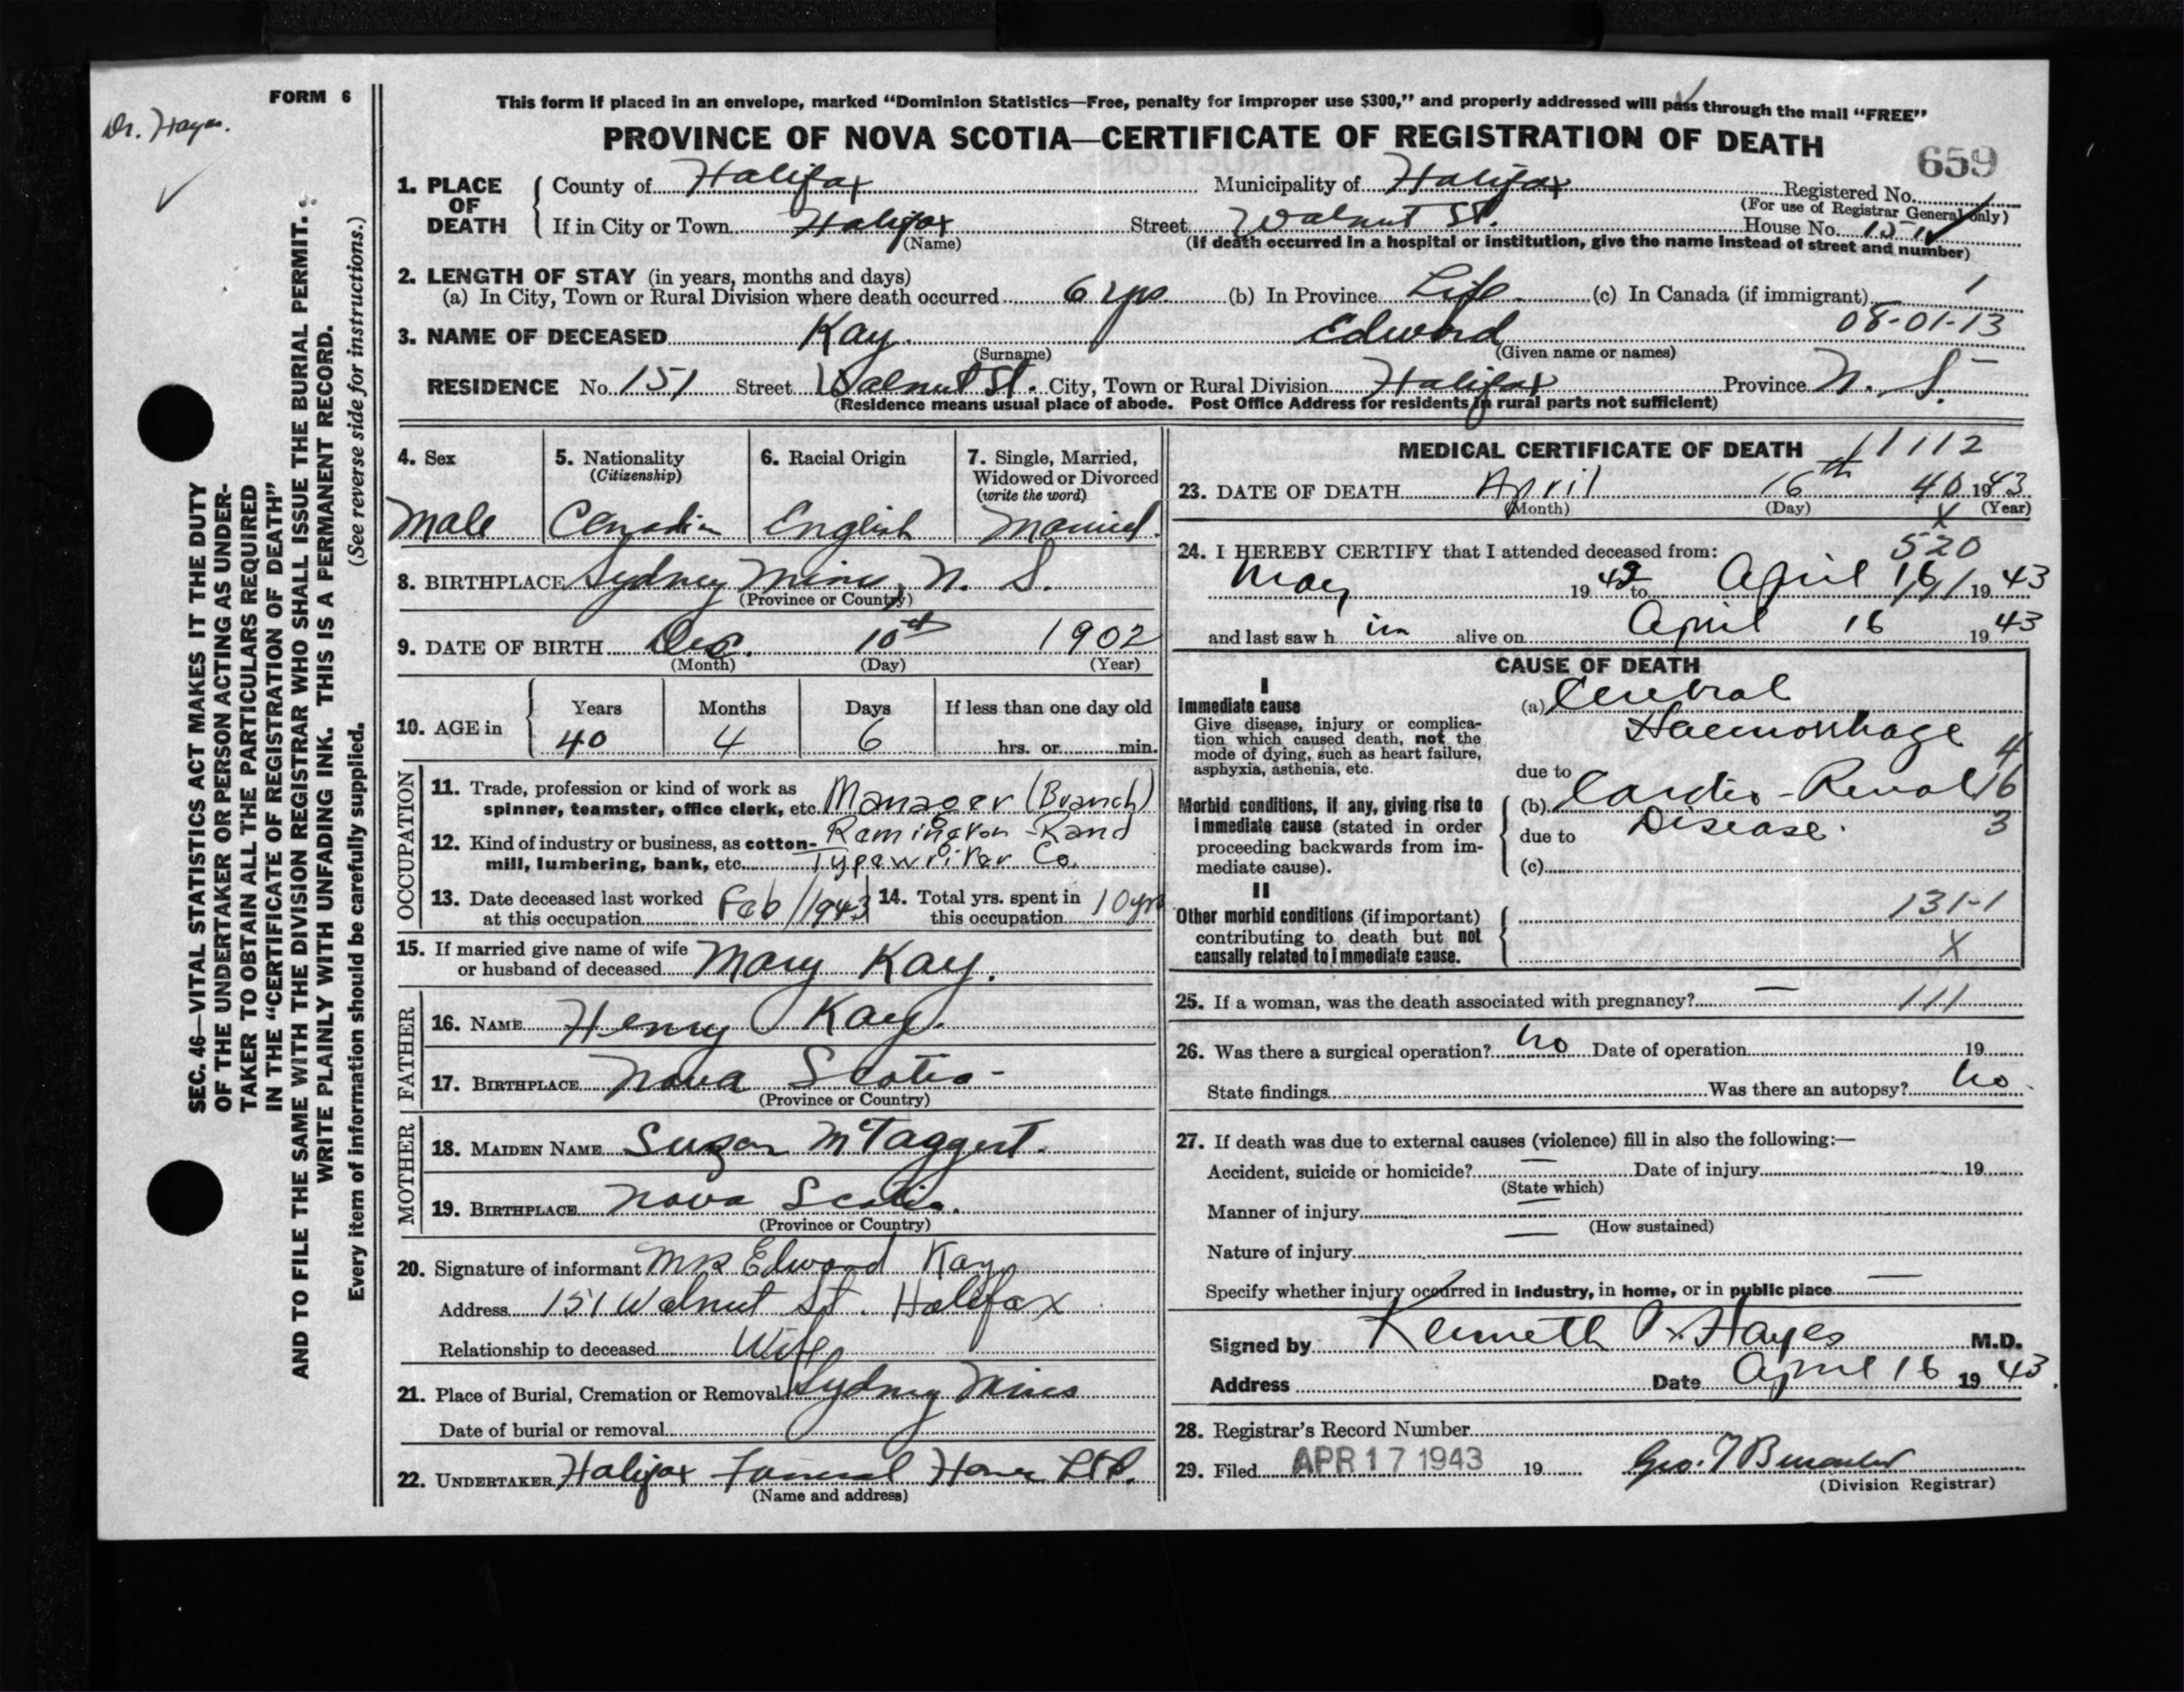 FORM 6
Dr. Hayes.
SEC. 46—VITAL STATISTICS ACT MAKES IT THE DUTY
OF THE UNDERTAKER OR PERSON ACTING AS UNDER-
TAKER TO OBTAIN ALL THE PARTICULARS REQUIRED
IN THE "CERTIFICATE OF REGISTRATION OF DEATH"
AND TO FILE THE SAME WITH THE DIVISION REGISTRAR WHO SHALL ISSUE THE BURIAL PERMIT.
WRITE PLAINLY WITH UNFADING INK. THIS IS A PERMANENT RECORD.
Every item of information should be carefully supplied. (See reverse side for instructions.)
This form if placed in an envelope, marked "Dominion Statistics—Free, penalty for improper use $300," and properly addressed will pass through the mail "FREE"
PROVINCE OF NOVA SCOTIA—CERTIFICATE OF REGISTRATION OF DEATH
659
1. PLACE OF DEATH County of Halifax Municipality of Halifax Registered No.
(For use of Registrar General only)
If in City or Town Halifax Street Walnut St. House No. 151
(Name) (If death occurred in a hospital or institution, give the name instead of street and number)
2. LENGTH OF STAY (in years, months and days)
(a) In City, Town or Rural Division where death occurred 6 yrs. (b) In Province Life. (c) In Canada (if immigrant) 1
08-01-13
3. NAME OF DECEASED Kay. Edward
(Surname) (Given name or names)
RESIDENCE No. 151 Street Walnut St. City, Town or Rural Division Halifax Province N. S.
(Residence means usual place of abode. Post Office Address for residents in rural parts not sufficient)
4. Sex
Male
5. Nationality
(Citizenship)
Canadian
6. Racial Origin
English
7. Single, Married,
Widowed or Divorced
(write the word)
Married.
8. BIRTHPLACE Sydney Mines, N. S.
(Province or Country)
9. DATE OF BIRTH Dec. 10th 1902
(Month) (Day) (Year)
10. AGE in Years Months Days If less than one day old
40 4 6 hrs. or min.
OCCUPATION
11. Trade, profession or kind of work as
spinner, teamster, office clerk, etc. Manager (Branch)
12. Kind of industry or business, as cotton-
mill, lumbering, bank, etc. Remington-Rand
Typewriter Co.
13. Date deceased last worked
at this occupation Feb/1943
14. Total yrs. spent in
this occupation 10 yrs
15. If married give name of wife
or husband of deceased Mary Kay.
FATHER
16. NAME Henry Kay.
17. BIRTHPLACE Nova Scotia-
(Province or Country)
MOTHER
18. MAIDEN NAME Suzan McTaggert.
19. BIRTHPLACE Nova Scotia.
(Province or Country)
20. Signature of informant Mrs Edward Kay
Address 151 Walnut St. Halifax
Relationship to deceased Wife
21. Place of Burial, Cremation or Removal Sydney Mines
Date of burial or removal
22. UNDERTAKER Halifax Funeral Home Ltd.
(Name and address)
MEDICAL CERTIFICATE OF DEATH 11112
23. DATE OF DEATH April 16th 40 1943
(Month) (Day) X (Year)
24. I HEREBY CERTIFY that I attended deceased from: 520
May 1942 to April 16 111 1943
and last saw h im alive on April 16 1943
CAUSE OF DEATH
I
Immediate cause
Give disease, injury or complica-
tion which caused death, not the
mode of dying, such as heart failure,
asphyxia, asthenia, etc.
(a) Cerebral
Haemorrhage
4
due to
Morbid conditions, if any, giving rise to
immediate cause (stated in order
proceeding backwards from im-
mediate cause).
(b) Cardio-Renal 16
due to Disease. 3
(c)
II
Other morbid conditions (if important)
contributing to death but not
causally related to immediate cause.
131-1
X
25. If a woman, was the death associated with pregnancy? — 111
26. Was there a surgical operation? no Date of operation 19
State findings Was there an autopsy? no
27. If death was due to external causes (violence) fill in also the following:—
Accident, suicide or homicide? — Date of injury 19
(State which)
Manner of injury —
(How sustained)
Nature of injury —
Specify whether injury occurred in industry, in home, or in public place —
Signed by Kenneth A. Hayes M.D.
Address Date April 16 1943.
28. Registrar's Record Number
29. Filed APR 17 1943 19
(Division Registrar)